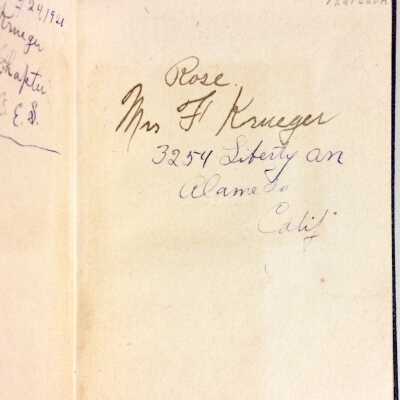 24, 1921
Krueger
Chapter
E.S.
Rose
Mrs F Krueger
3254 Liberty an
Alameda
Calif